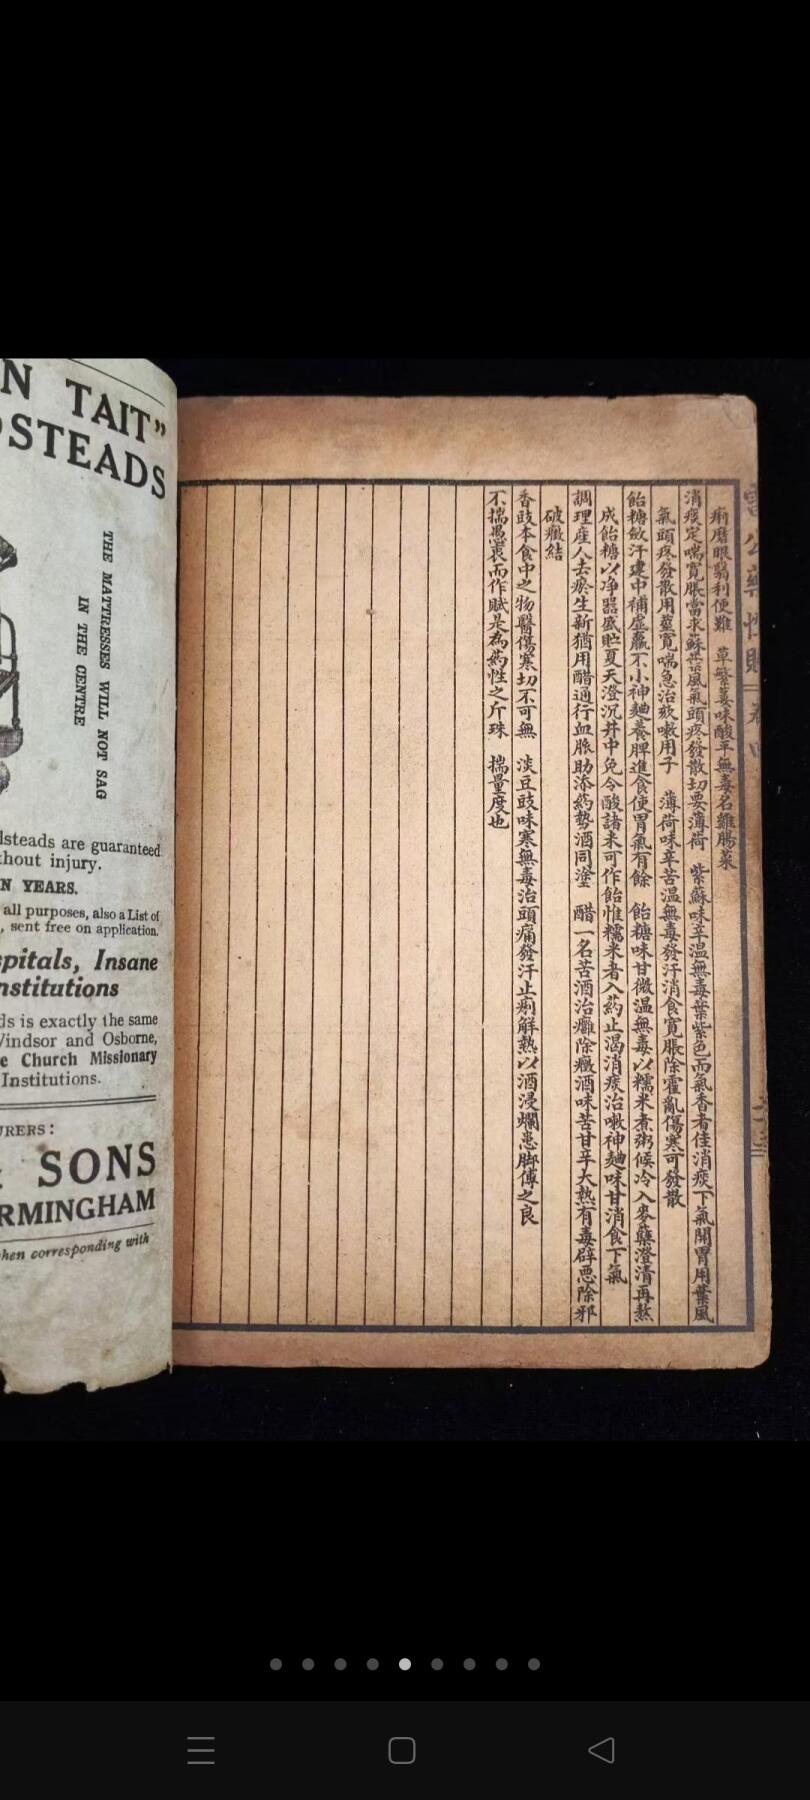 N TAIT”
DSTEADS
THE MATTRESSES WILL NOT SAG
IN THE CENTRE
dsteads are guaranteed
thout injury.
N YEARS.
all purposes, also a List of
, sent free on application.
spitals, Insane
nstitutions
ds is exactly the same
Vindsor and Osborne,
e Church Missionary
Institutions.
URERS:
& SONS
RMINGHAM
hen corresponding with
公藥性賦 卷四
痢磨眼翳利便難 草蘩蔞味酸平無毒名雞腸菜
消痰定喘寬脹當求蘇葉風氣頭疼發散切要薄荷 紫蘇味辛溫無毒葉紫色而氣香者佳消痰下氣開胃用葉風
氣頭疼發散用莖寬喘急治欬嗽用子 薄荷味辛苦溫無毒發汗消食寬脹除霍亂傷寒可發散
飴糖斂汗建中補虛羸不小神麯養脾進食使胃氣有餘 飴糖味甘微溫無毒以糯米煮粥候冷入麥蘗澄清再熬
成飴糖以净器盛貯夏天澄沉井中免令酸諸米可作飴惟糯米者入葯止渴消痰治嗽神麯味甘消食下氣
調理產人去瘀生新猶用醋通行血脉助添葯勢酒同塗 醋一名苦酒治癰除癥酒味苦甘辛大熱有毒辟惡除邪
破癥結
香豉本食中之物醫傷寒切不可無 淡豆豉味寒無毒治頭痛發汗止痢解熱以酒浸爛患脚傅之良
不揣愚衷而作賦是為葯性之斤珠 揣量度也